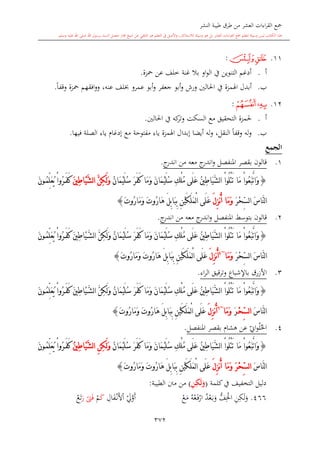 جمع القراءات العشر من طرق طيبة النشر
١١. ﴿خَلَٰقٖۚ وَلَبِئْسَ﴾:
أ . أدغم التنوين في الواو بلا غنة خلف عن حمزة.
ب. أبدل الهمزة في الحالين ورش وأبو جعفر وأبو عمرو بخلف عنه، ووافقهم حمزة وقفاً.
١٢. ﴿بِهِۦٓ أَنفُسَهُمْ﴾:
أ . لحمزة التحقيق مع السكت وتركه في الحالين.
ب. وله وقفاً النقل، وله أيضا إبدال الهمزة ياء مفتوحة مع إدغام ياء الصلة فيها.
الجمع
١. قالون بقصر المنفصل واندرج معه من اندرج.
﴿وَاتَّبَعُوا۟ مَا تَتْلُوا۟ الشَّيَٰطِينُ عَلَىٰ مُلْكِ سُلَيْمَٰنَ وَمَا كَفَرَ سُلَيْمَٰنُ وَلَٰكِنَّ الشَّيَٰطِينَ كَفَرُوا۟ يُعَلِّمُونَ
النَّاسَ السِّحْرَ وَمَا أُنزِلَ عَلَى الْمَلَكَيْنِ بِبَابِلَ هَٰرُوتَ وَمَٰرُوتَ﴾
٢. قالون بتوسط المنفصل واندرج معه من اندرج.
﴿وَاتَّبَعُوا۟ مَا تَتْلُوا۟ الشَّيَٰطِينُ عَلَىٰ مُلْكِ سُلَيْمَٰنَ وَمَا كَفَرَ سُلَيْمَٰنُ وَلَٰكِنَّ الشَّيَٰطِينَ كَفَرُوا۟ يُعَلِّمُونَ
النَّاسَ السِّحْرَ وَمَآ أُنزِلَ عَلَى الْمَلَكَيْنِ بِبَابِلَ هَٰرُوتَ وَمَٰرُوتَ﴾
٣. الأزرق بالإشباع وترقيق الراء.
﴿وَاتَّبَعُوا۟ مَا تَتْلُوا۟ الشَّيَٰطِينُ عَلَىٰ مُلْكِ سُلَيْمَٰنَ وَمَا كَفَرَ سُلَيْمَٰنُ وَلَٰكِنَّ الشَّيَٰطِينَ كَفَرُوا۟ يُعَلِّمُونَ
النَّاسَ السِّحْرَ وَمَآ أُنزِلَ عَلَى الْمَلَكَيْنِ بِبَابِلَ هَٰرُوتَ وَمَٰرُوتَ﴾
٤. الحُلْوانِيّ عن هشام بقصر المنفصل.
﴿وَاتَّبَعُوا۟ مَا تَتْلُوا۟ الشَّيَٰطِينُ عَلَىٰ مُلْكِ سُلَيْمَٰنَ وَمَا كَفَرَ سُلَيْمَٰنُ وَلَٰكِنِ الشَّيَٰطِينُ كَفَرُوا۟ يُعَلِّمُونَ
النَّاسَ السِّحْرَ وَمَا أُنزِلَ عَلَى الْمَلَكَيْنِ بِبَابِلَ هَٰرُوتَ وَمَٰرُوتَ﴾
دليل التخفيف في كلمة (ولكن) من متن الطيبة:
٤٦٦. وَلَكِنِ الْخِفُّ وَبَعْدُ ارْفَعْهُ مَعْ أَوَّلَيِ الأَنْفَالِ كَمْ فَتًى رَتَعْ
٣٧٢